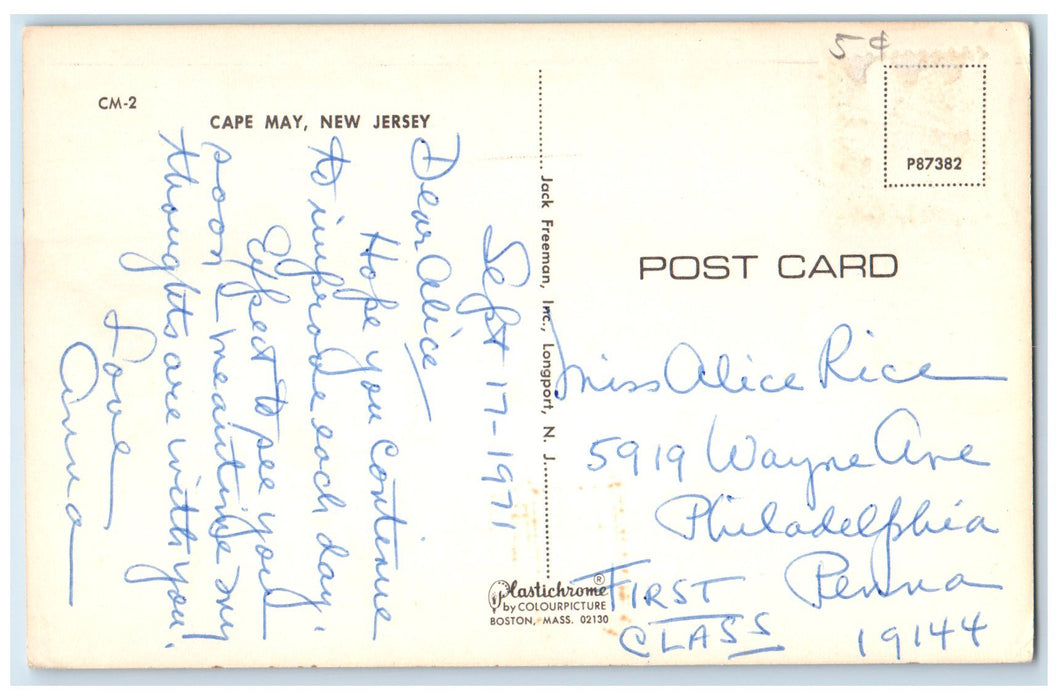 CM-2
CAPE MAY, NEW JERSEY
Sept 17-1971
Dear Alice
Hope you continue
to improve each day.
Expect to see you
soon — meantime my
thoughts are with you.
Love
Anna
Jack Freeman, Inc., Longport, N. J.
Plastichrome®
by COLOURPICTURE
BOSTON, MASS. 02130
5¢
P87382
POST CARD
Miss Alice Rice
5919 Wayne Ave
Philadelphia
Penna
19144
FIRST
CLASS